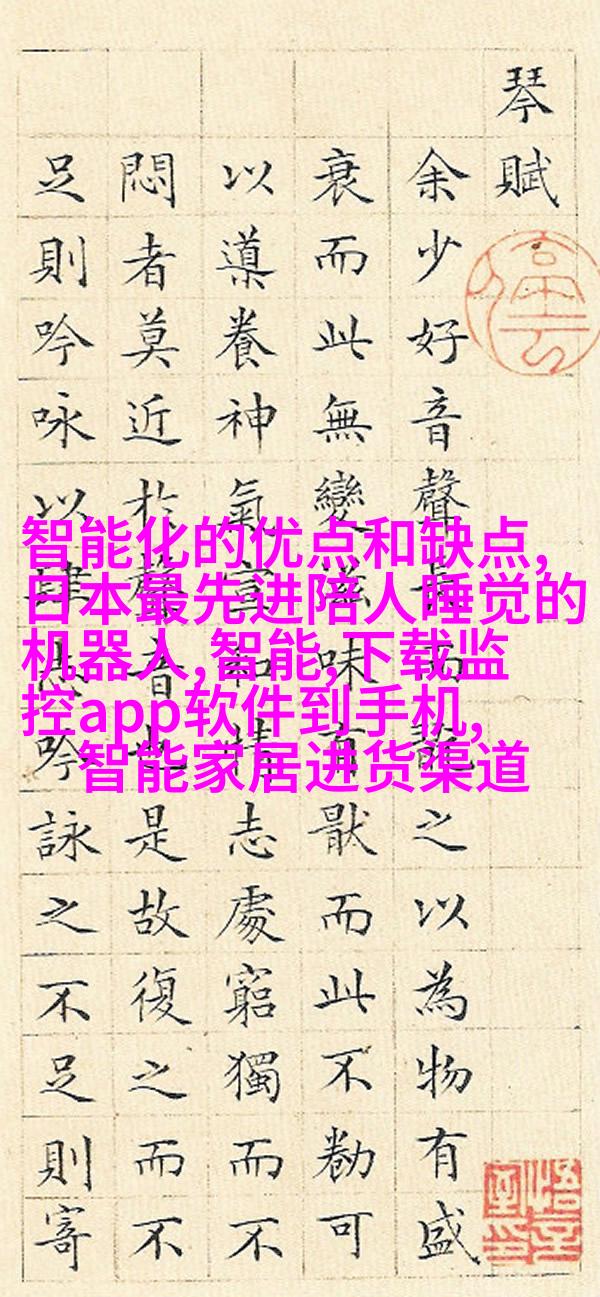 琴賦
余少好音聲長而翫之以為物有盛
衰而此無變滋味有猒而此不勌可
以導養神氣宣和情志處窮獨而不
悶者莫近於聲音也是故復之而不
足則吟咏以肆志吟詠之不足則寄
智能化的优点和缺点,
日本最先进陪人睡觉的
机器人,智能,下载监
控app软件到手机,
智能家居进货渠道